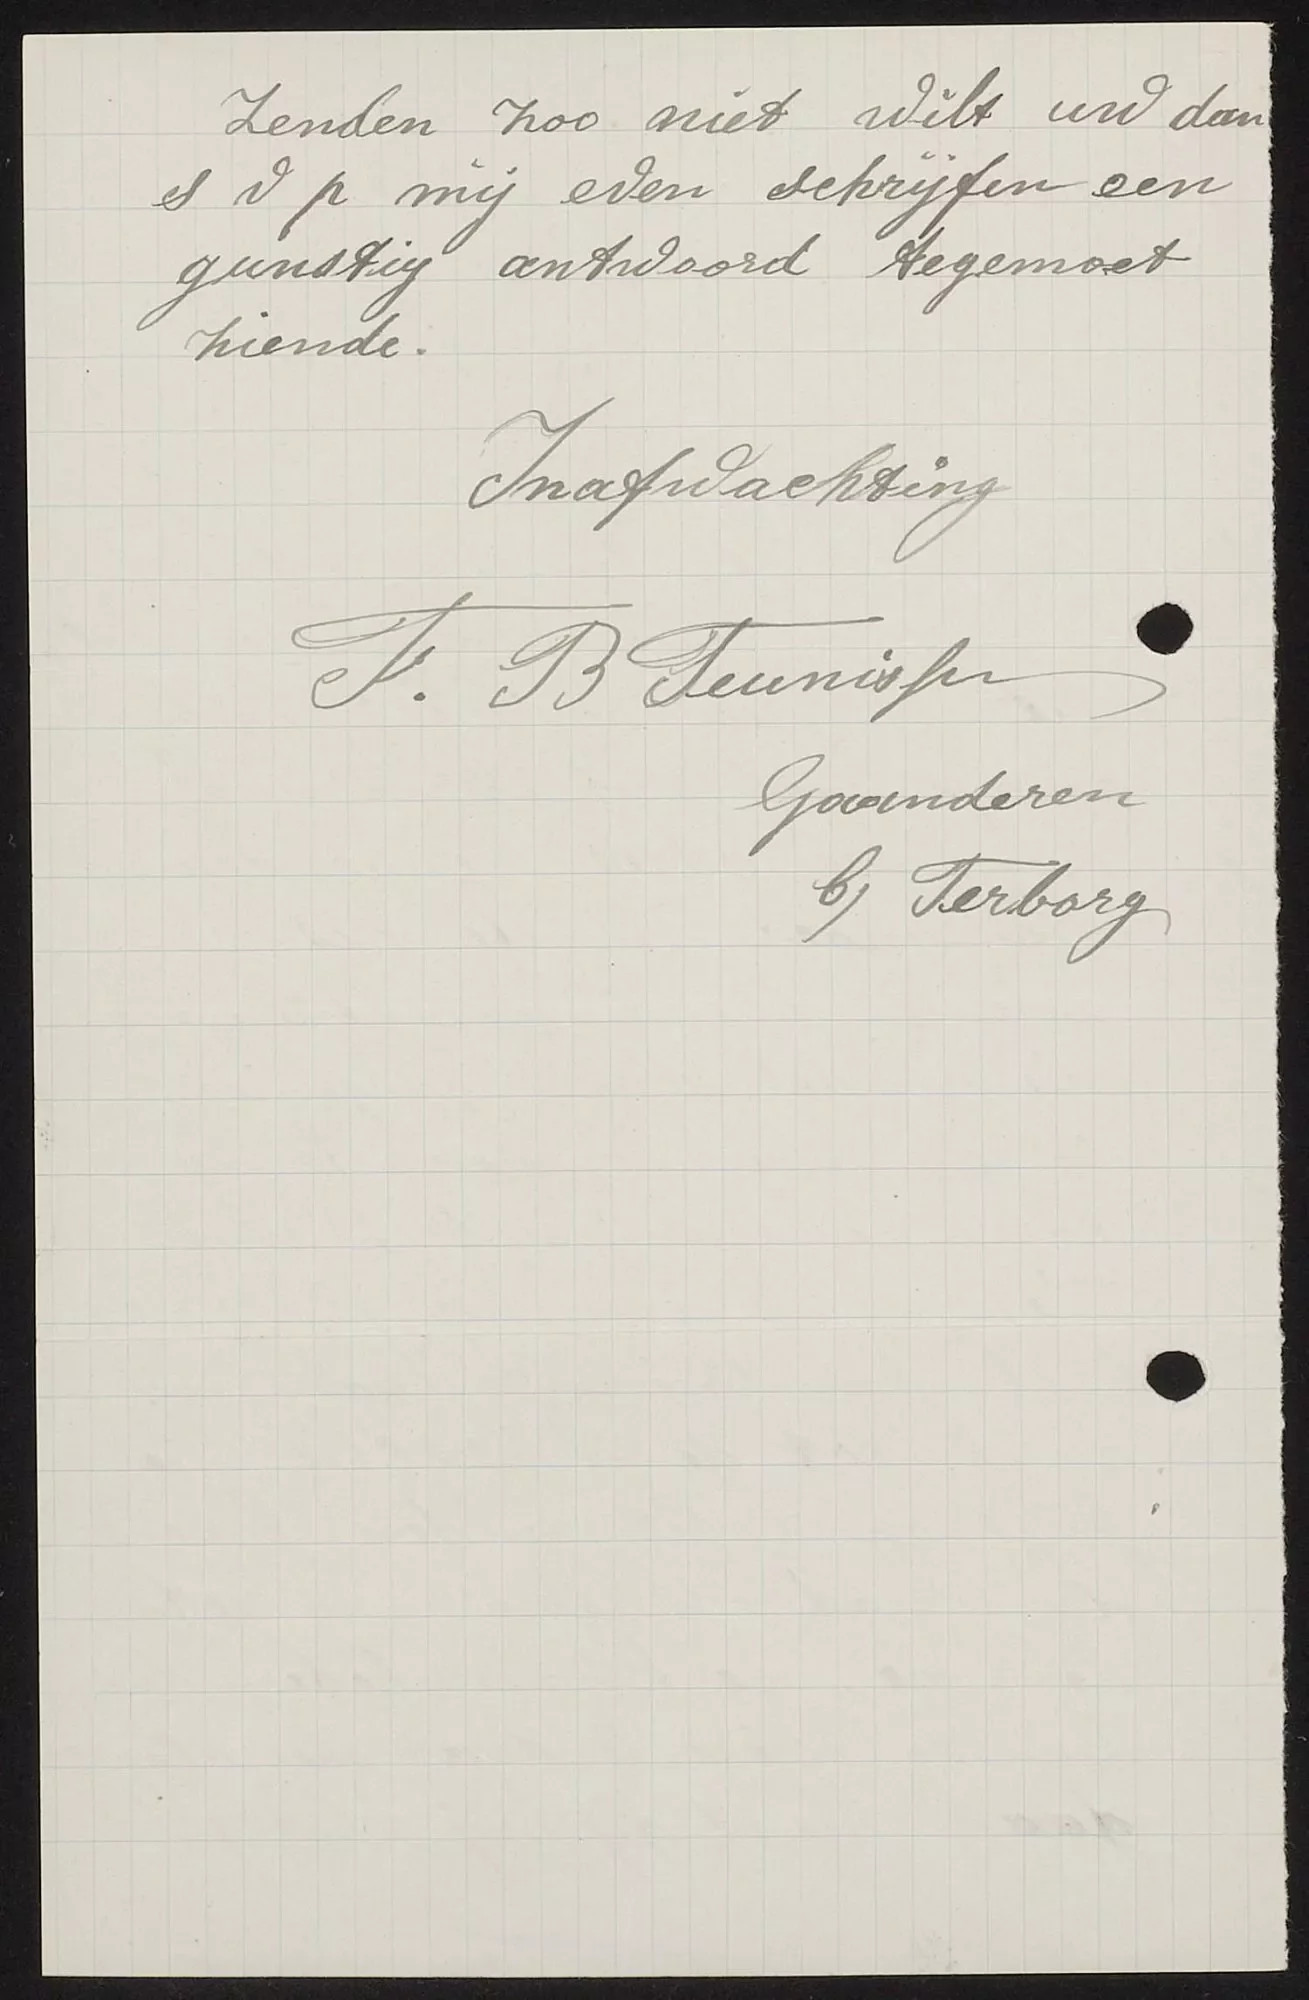 Zenden zoo niet wilt uw dan
s v p mij even schrijfen een
gunstig antwoord tegemoet
ziende.
Inafwachting
F. B Teunissen
Gaanderen
b/ Terborg